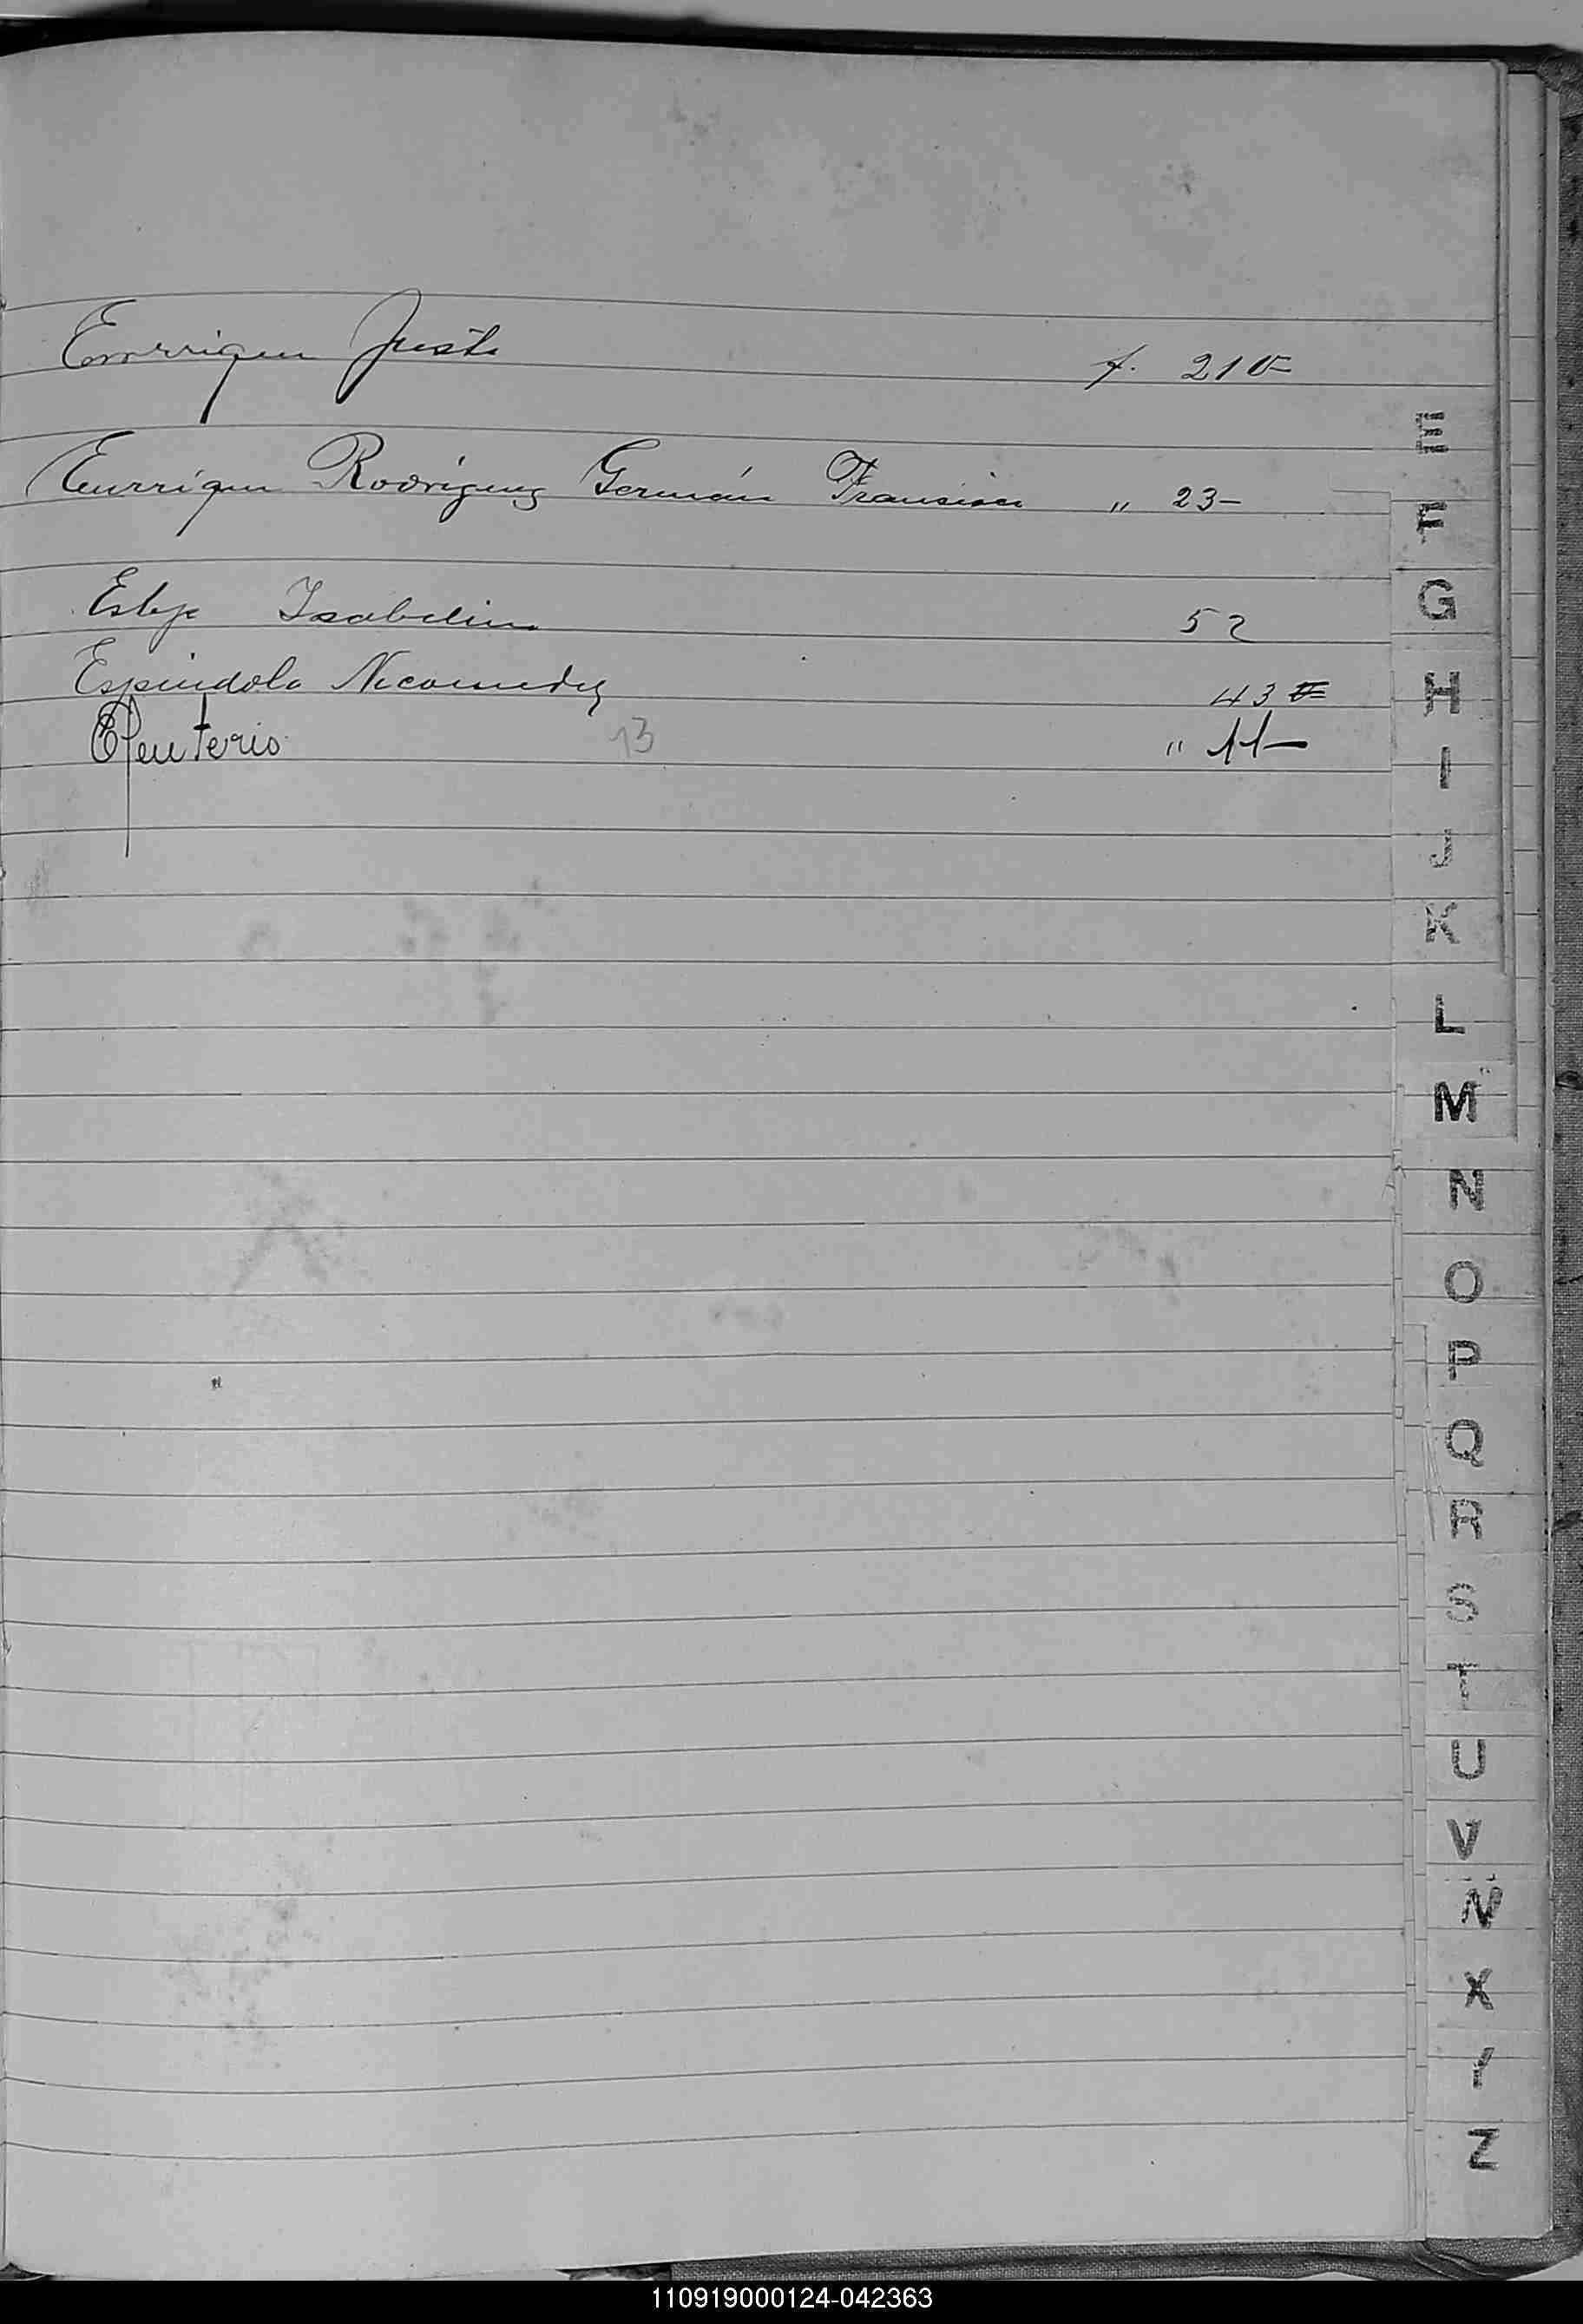 Enrriquez Justo f. 210-
Enrriquez Rodriguez Germán Fransisco " 23-
Estepe Isabelina 52
Espindola Nicomedes 43
Eleuterio 13 " 11-
E
F
G
H
I
J
K
L
M
N
O
P
Q
R
S
T
U
V
N
X
Y
Z
110919000124-042363